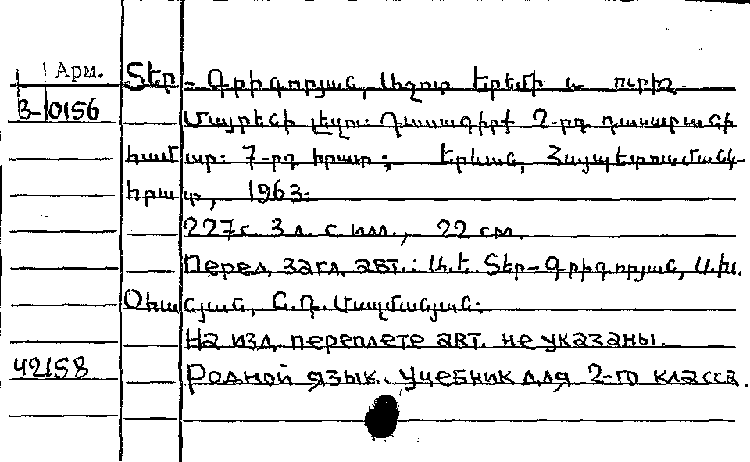 Арм. Տեր-Գրիգորյան, Աշոտ Երեմի և ուրիշ
3-10156 Մայրենի լեզու: Դասագիրք 2-րդ դասարանի
համար: 7-րդ հրատ.; Երևան, Հայպետուսմանկ-
հրատ, 1963:
227 с. 3 л. с илл., 22 см.
Перед. загл. авт.: Ա.Ե. Տեր-Գրիգորյան, Ա.Խ.
Օհա
На изд. переплете авт. не указаны.
42158 Родной язык. Учебник для 2-го класса.